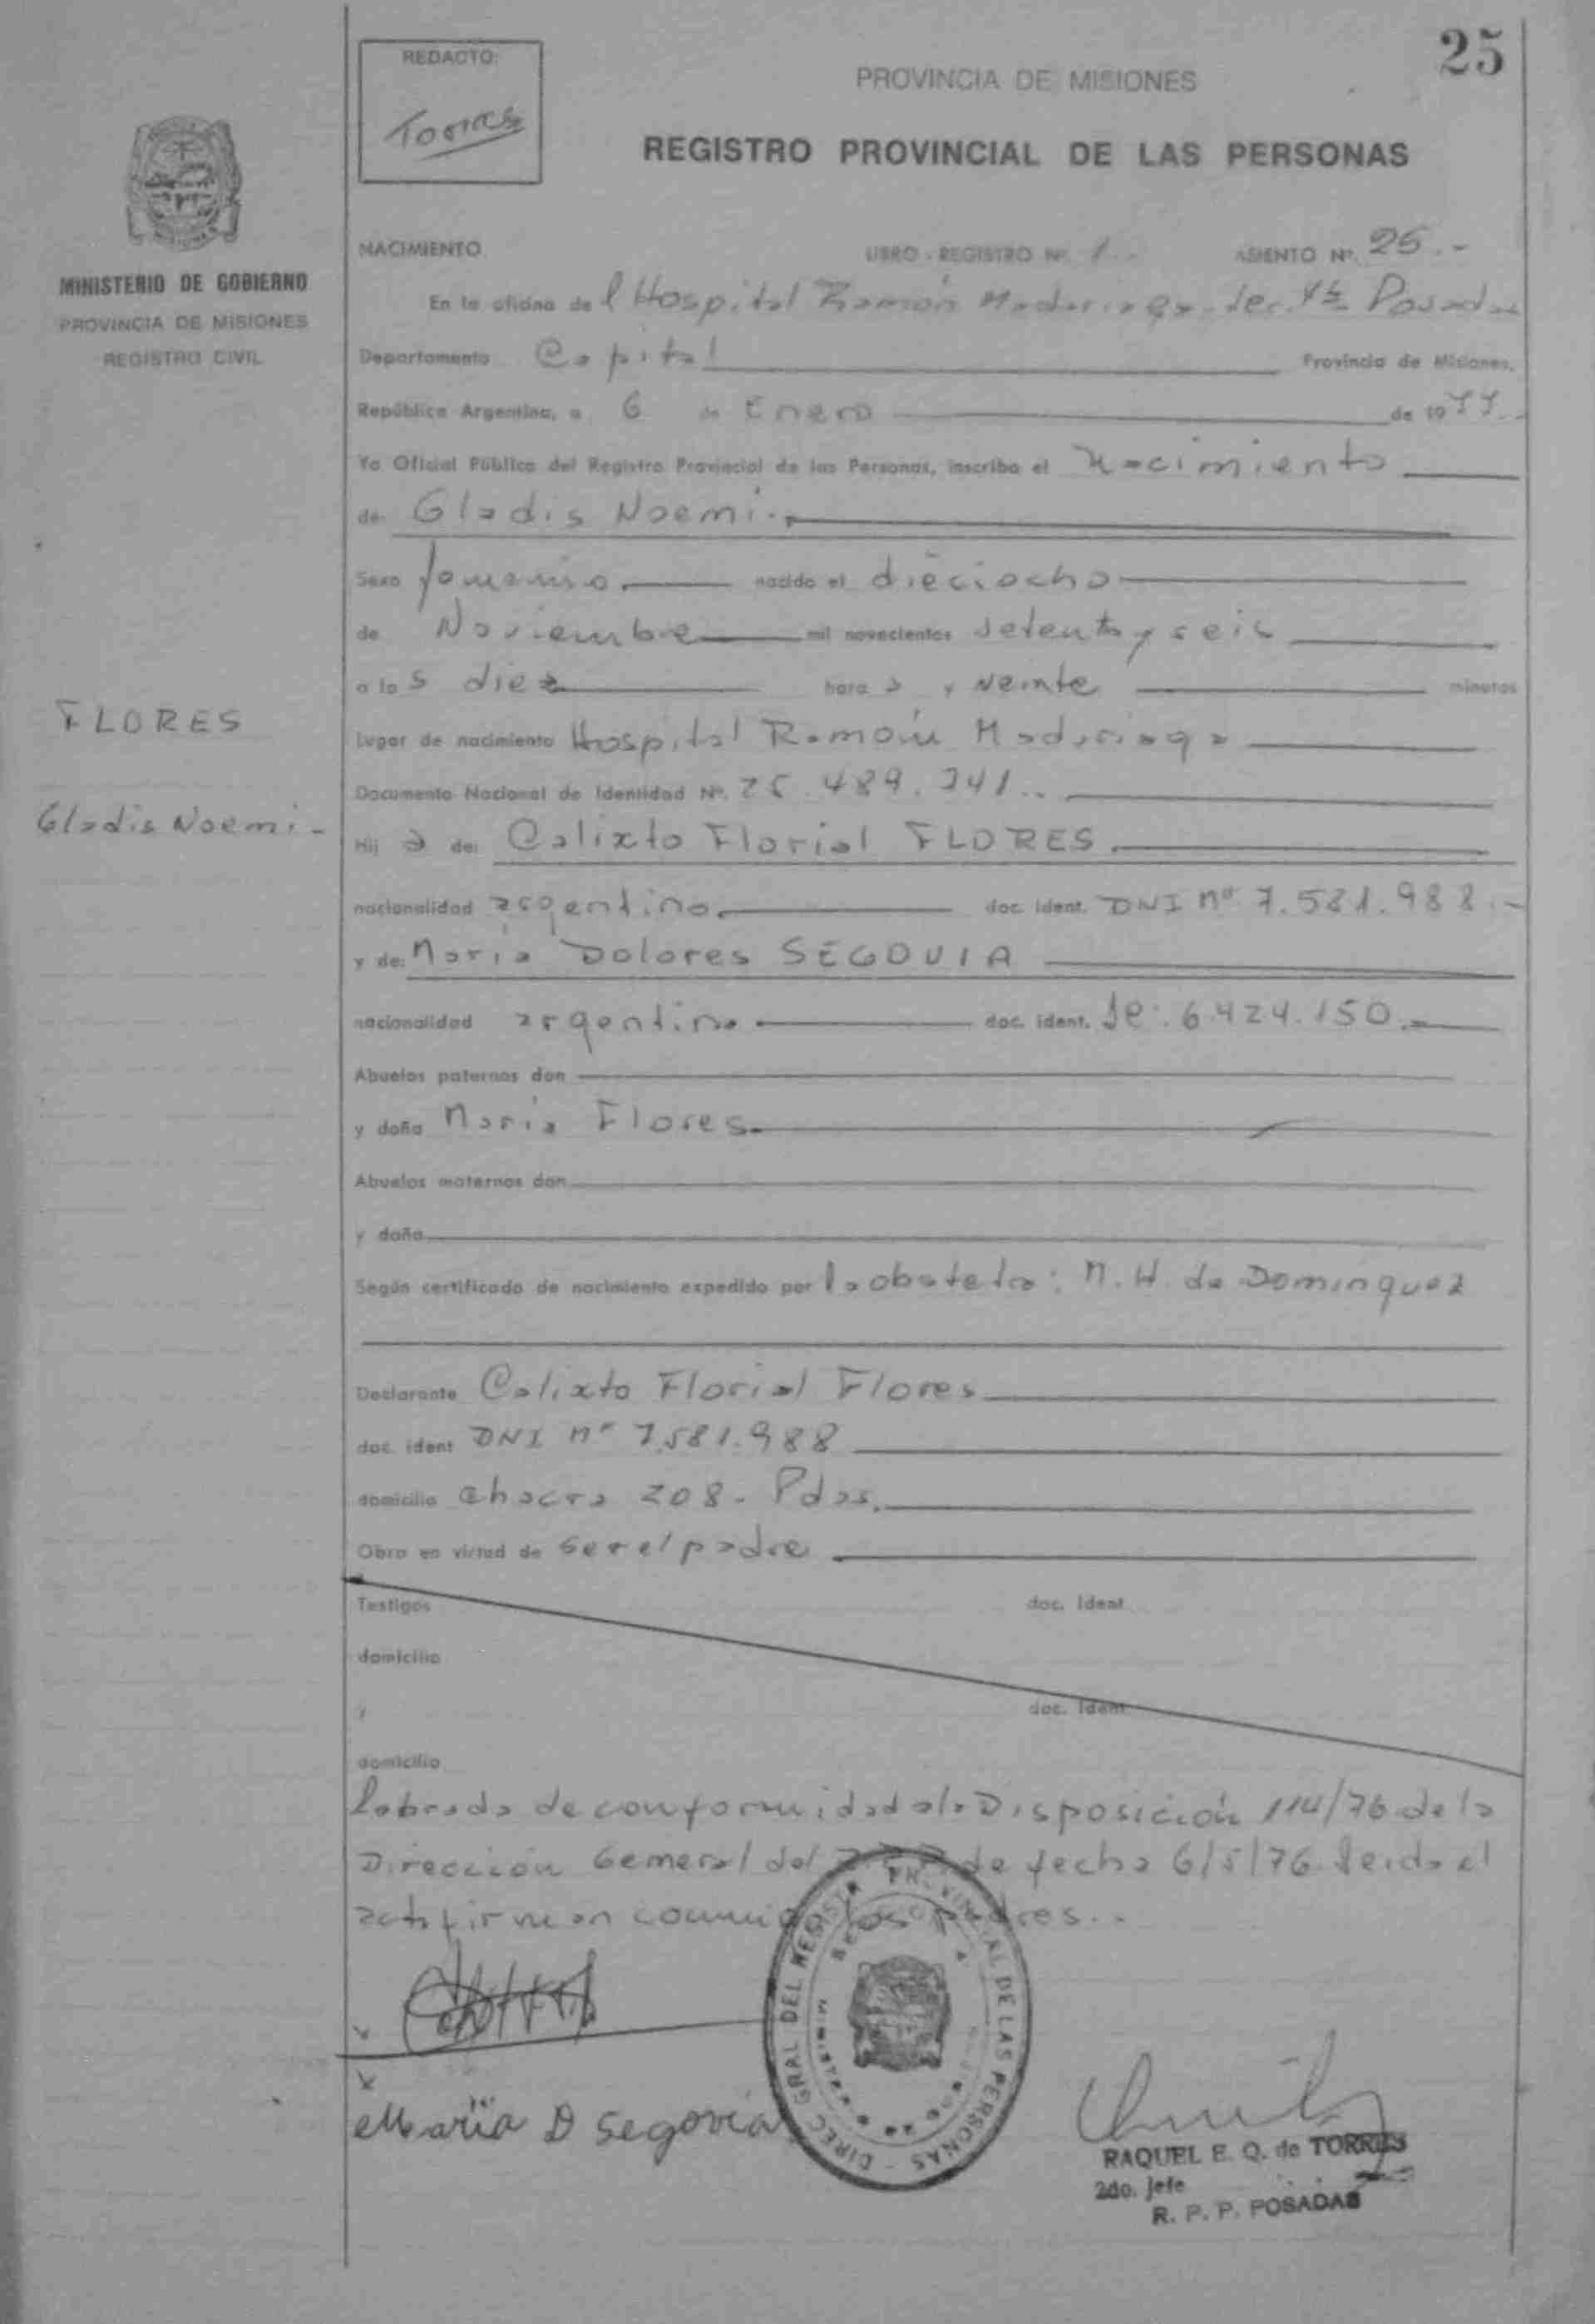 25
REDACTO:
Torres
PROVINCIA DE MISIONES
REGISTRO PROVINCIAL DE LAS PERSONAS
MINISTERIO DE GOBIERNO
PROVINCIA DE MISIONES
REGISTRO CIVIL
NACIMIENTO LIBRO - REGISTRO Nº 1.- ASIENTO Nº. 25.-
En la oficina de l Hospital Ramón Madariaga Posadas
Departamento Capital Provincia de Misiones,
República Argentina, a 6 de Enero de 1977.-
Yo Oficial Público del Registro Provincial de las Personas, inscribo el Nacimiento
de Gladis Noemi.-
Sexo femenino nacido el dieciocho
de Noviembre mil novecientos setenta y seis
a las diez horas y veinte minutos
FLORES
Lugar de nacimiento Hospital Ramón Madariaga
Documento Nacional de Identidad Nº. 25.489.341.-
Gladis Noemi -
Hija de: Calixto Florial FLORES
nacionalidad argentino doc. ident. DNI nº 7.581.988.-
y de: Maria Dolores SEGOVIA
nacionalidad argentina doc. ident. 6.424.150.-
Abuelos paternos don
y doña Maria Flores
Abuelos maternos don
y doña
Según certificado de nacimiento expedido por la obstetra: N. H. de Dominguez
Declarante Calixto Florial Flores
doc. ident DNI nº 7.581.988
domicilio Chacra 208 - Pdas.
Obra en virtud de ser el padre
Testigos doc. ident
domicilio
y doc. ident
domicilio
Labrada de conformidad a la Disposición 114/76 de la
Dirección General del de fecha 6/5/76 Leida el
acta firman conmigo los padres..
DIREC. GRAL. DEL REGISTRO PROVINCIAL DE LAS PERSONAS
Maria D Segovia
RAQUEL E. Q. de TORRES
2do. Jefe
R. P. P. POSADAS